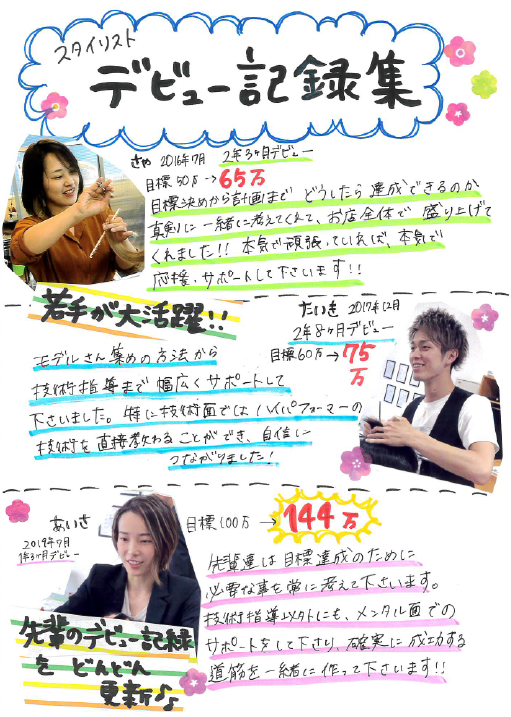 スタイリスト
デビュー記録集
さや 2016年7月 2年3ヶ月デビュー
目標50万→65万
目標決めから計画まで どうしたら達成できるのか
真剣に一緒に考えてくれて、お店全体で 盛り上げて
くれました!! 本気で頑張っていれば、本気で
応援・サポートして下さいます!!
若手が大活躍!!
たいき 2017年12月
2年8ヶ月デビュー
目標60万→75
万
モデルさん集めの方法から
技術指導まで 幅広くサポートして
下さいました。特に技術面では ハイパフォーマーの
技術を直接教わることができ、自信に
つながりました!
あいさ
2019年9月
1年3ヶ月デビュー
目標100万→144万
先輩達は目標達成のために
必要な事を常に考えて下さいます。
技術指導以外にも、メンタル面での
サポートをして下さり、確実に成功する
道筋を一緒に作って下さいます!!
先輩のデビュー記録
を どんどん
更新♪♪